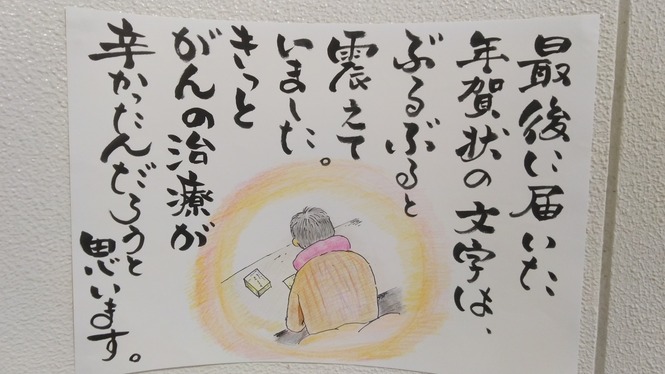 最後に届いた
年賀状の文字は、
ぶるぶると
震えて
いました。
きっと
がんの治療が
辛かったんだろうと
思います。